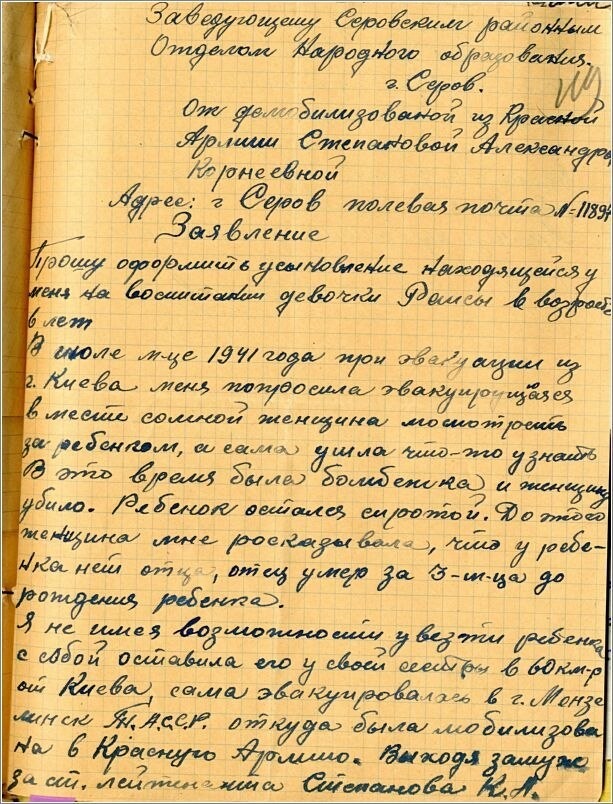 Заведующему Серовским районным
Отделом Народного образования.
г. Серов.
От демобилизованой из Красной
Армии Степановой Александры
Корнеевной
Адрес: г Серов полевая почта №-11894
Заявление
Прошу оформить усыновление находящейся у
меня на воспитании девочки Раисы в возрасте
6 лет
В июле м-це 1941 года при эвакуации из
г. Киева меня попросила эвакуирующаяся
вместе сомной женщина посмотреть
за ребенком, а сама ушла что-то узнать
В это время была бомбежка и женщину
убило. Ребенок остался сиротой. До этого
женщина мне росказывала, что у ребе-
нка нет отца, отец умер за 3-м-ца до
рождения ребенка.
Я не имея возможности увезти ребенка
с собой оставила его у своей сестры в 60 км-р
от Киева, сама эвакуировалась в г. Мензе
линск Т.А.ССР. откуда была мобилизова
на в Красную Армию. Выходя замуж
за ст. лейтенанта Степанова К. А.